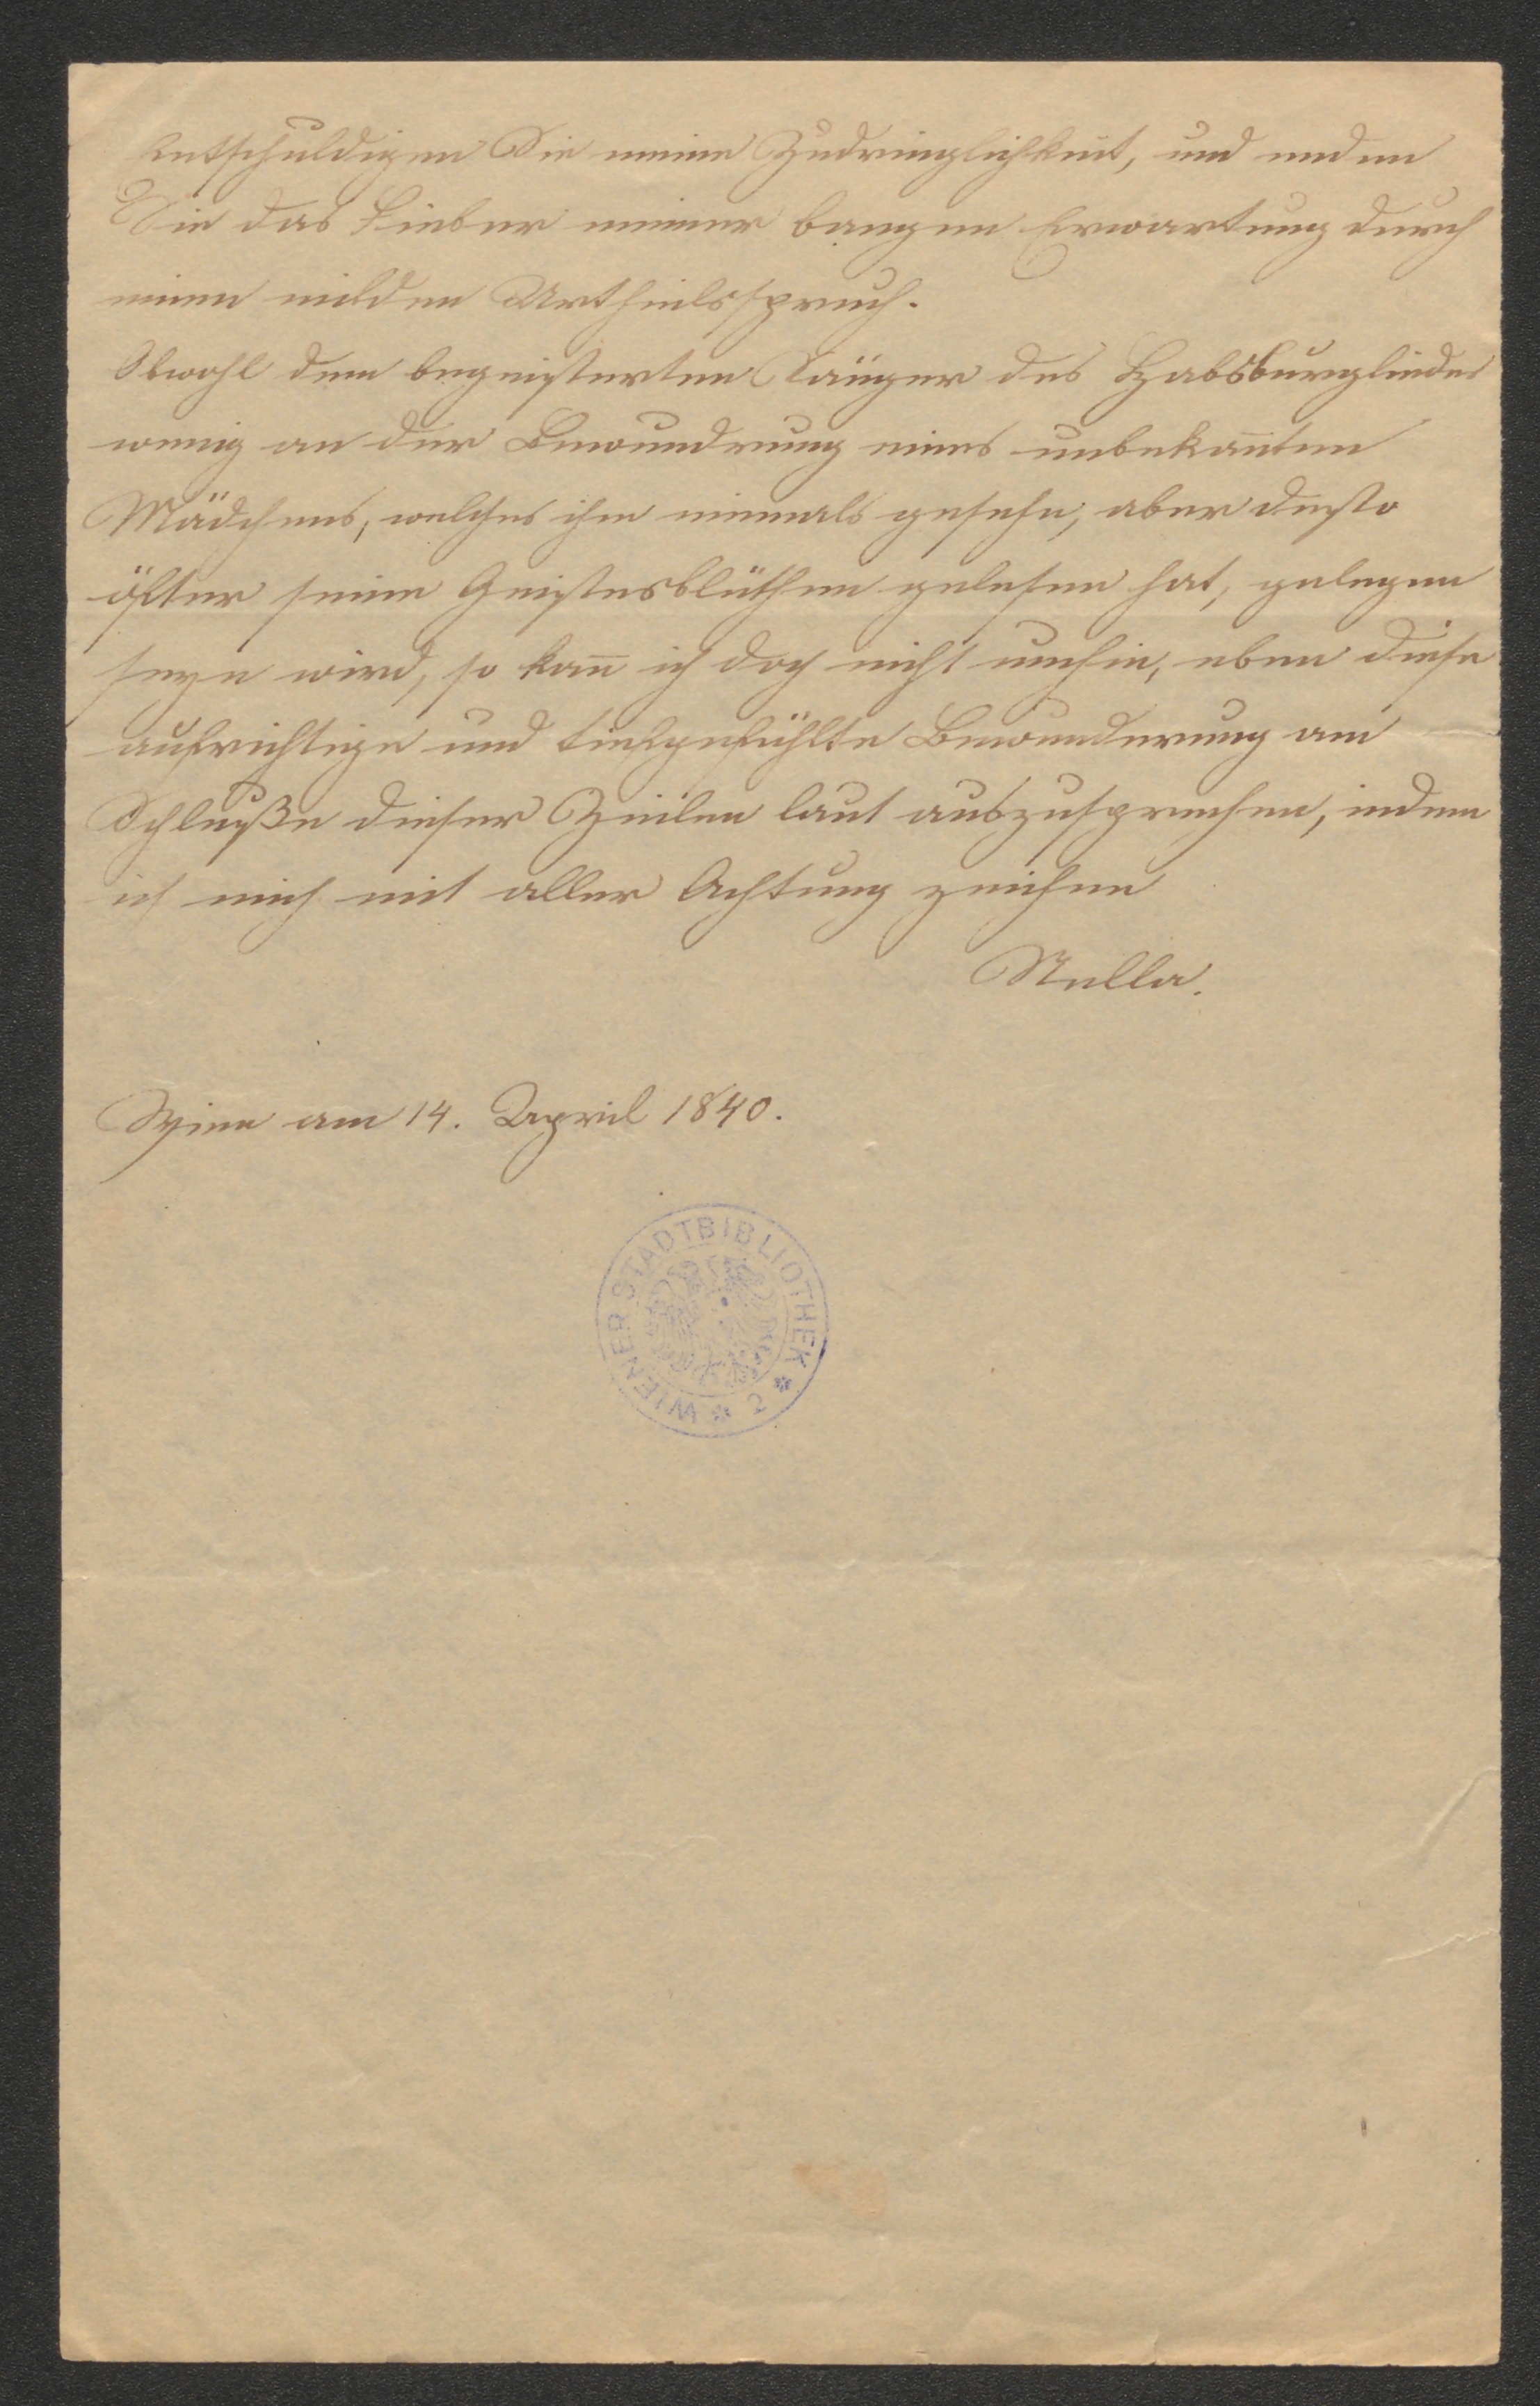 Entschuldigen Sie meine Zudringlichkeit, und enden
Sie das Fieber meiner bangen Erwartung durch
einen milden Urtheilsspruch.
Obwohl dem begeisterten Sänger des Habsburgliedes
wenig an der Bewundrung eines unbekan̅ten
Mädchens, welches ihn niemals gesehn, aber desto
öfter seine Geistesblüthen gelesen hat, gelegen
seyn wird, so kan̅ ich doch nicht umhin, eben diese
aufrichtige und tiefgefühlte Bewunderung am
Schluße dieser Zeilen laut auszusprechen, indem
ich mich mit aller Achtung zeichne
Stella.
Wien am 14. April 1840.
WIENER STADTBIBLIOTHEK * 2 *